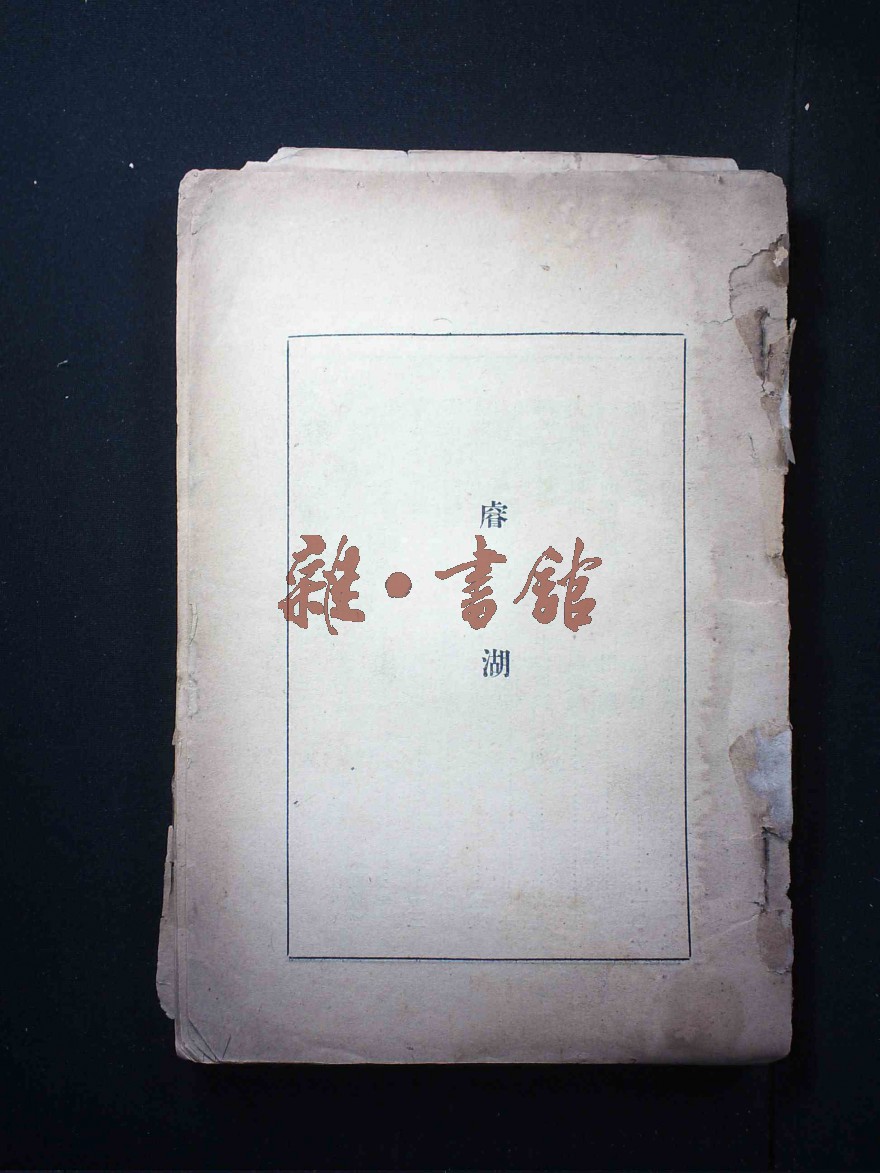 睿
雜·書館
湖